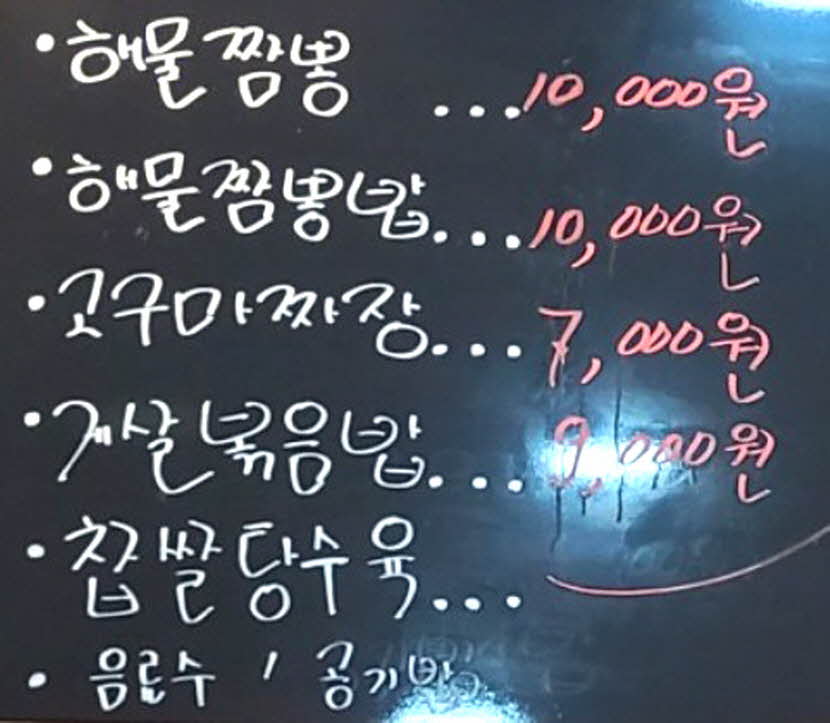 · 해물짬뽕 ...10,000원
· 해물짬뽕밥...10,000원
· 고구마짜장...7,000원
· 게살볶음밥...9,000원
· 찹쌀탕수육...
· 음료수 / 공기밥